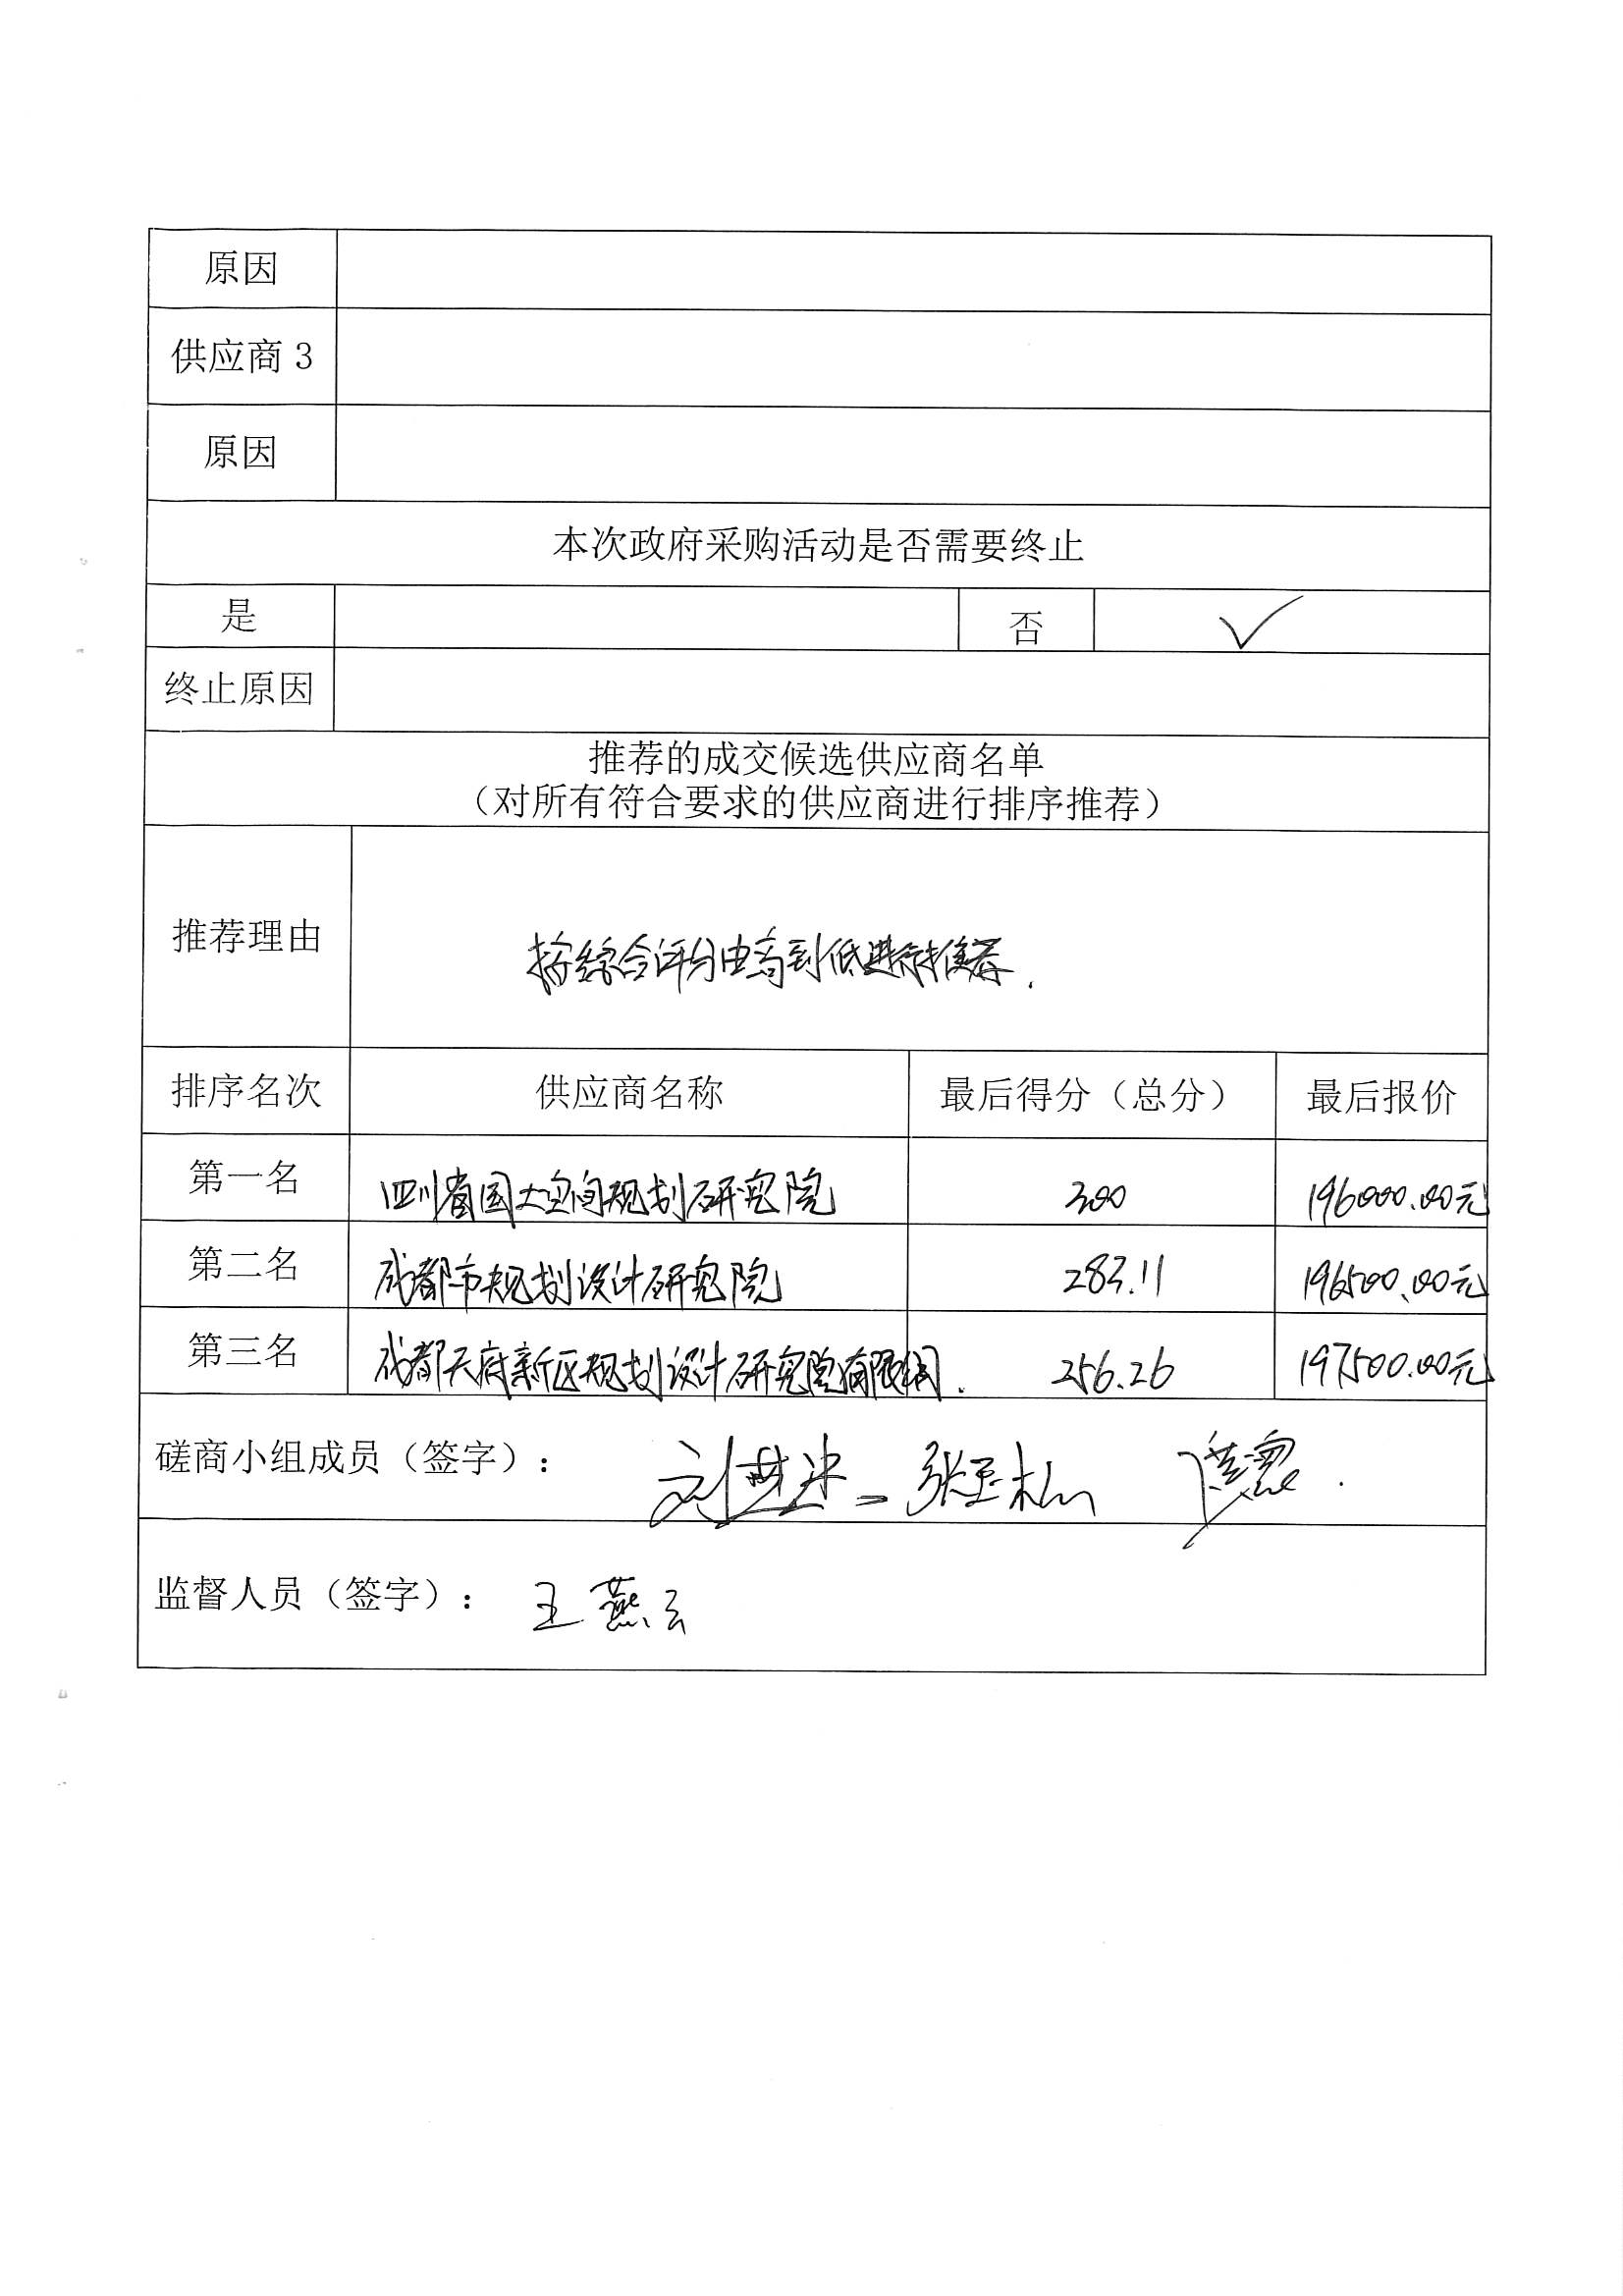 原因
供应商 3
原因
本次政府采购活动是否需要终止
是 否 ✓
终止原因
推荐的成交候选供应商名单
（对所有符合要求的供应商进行排序推荐）
推荐理由 按综合评分由高到低进行推荐.
排序名次 供应商名称 最后得分（总分） 最后报价
第一名 四川省国土空间规划研究院 300 196000.00元
第二名 成都市规划设计研究院 283.11 196500.00元
第三名 成都天府新区规划设计研究院有限公司. 256.26 197500.00元
磋商小组成员（签字）：
监督人员（签字）： 王燕云